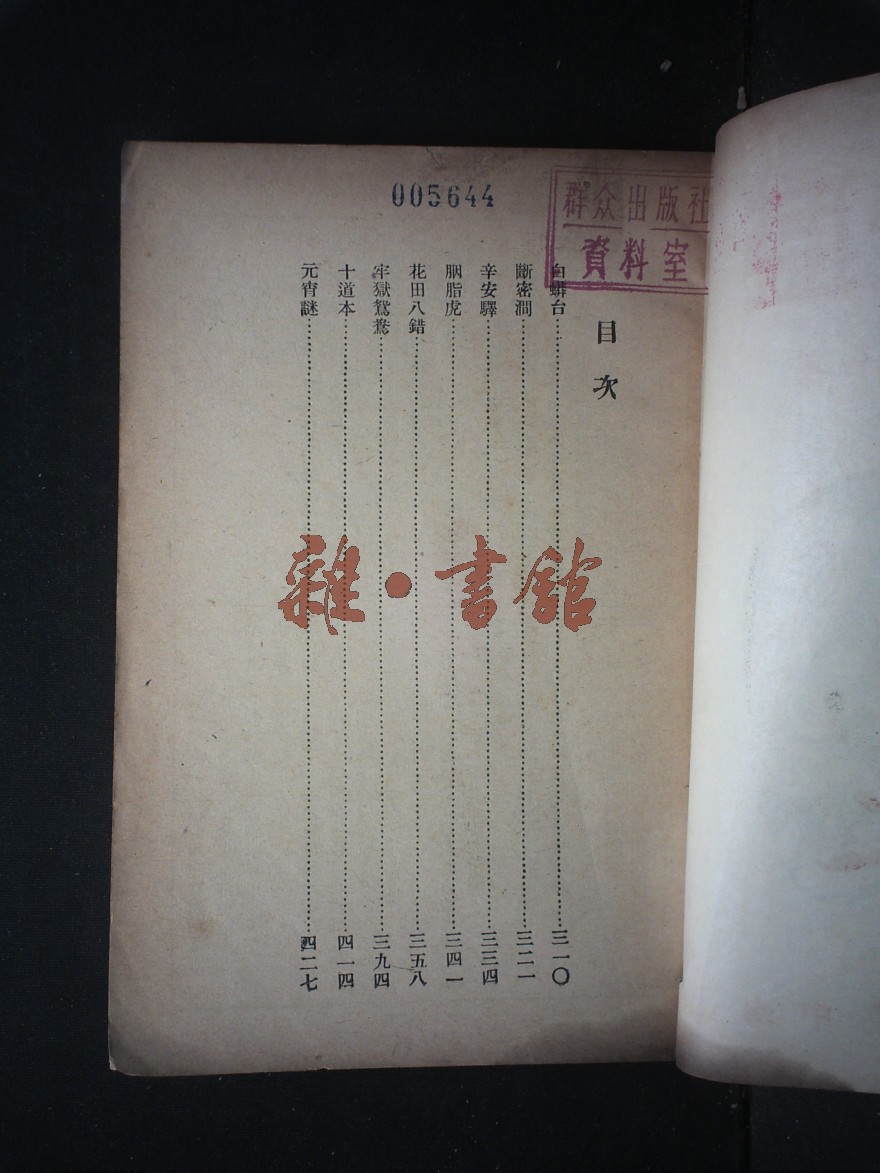 005644
群众出版社
資料室
目次
白蟒台 三一〇
斷密澗 三二一
辛安驛 三三四
胭脂虎 三四一
花田八錯 三五八
牢獄鴛鴦 三九四
十道本 四一四
元宵謎 四二七
雜·書館